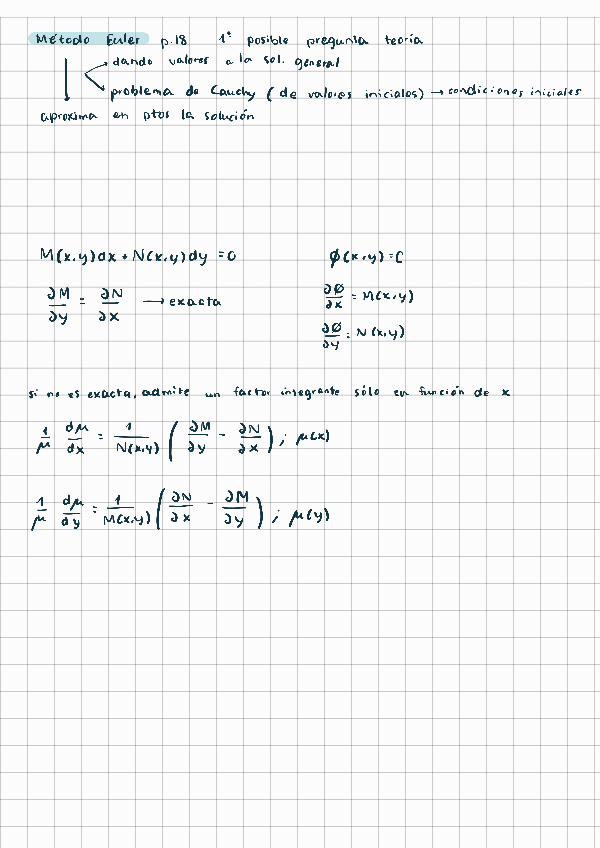 Método Euler p.18 1ª posible pregunta teoría
dando valores a la sol. general
problema de Cauchy (de valores iniciales) → condiciones iniciales
aproxima en ptos la solución
M(x,y)dx + N(x,y)dy = 0
∂M/∂y = ∂N/∂x → exacta
φ(x,y) = C
∂Ø/∂x = M(x,y)
∂Ø/∂y = N(x,y)
si no es exacta, admite un factor integrante sólo en función de x
1/μ dμ/dx = 1/N(x,y) (∂M/∂y - ∂N/∂x) ; μ(x)
1/μ dμ/dy = 1/M(x,y) (∂N/∂x - ∂M/∂y) ; μ(y)